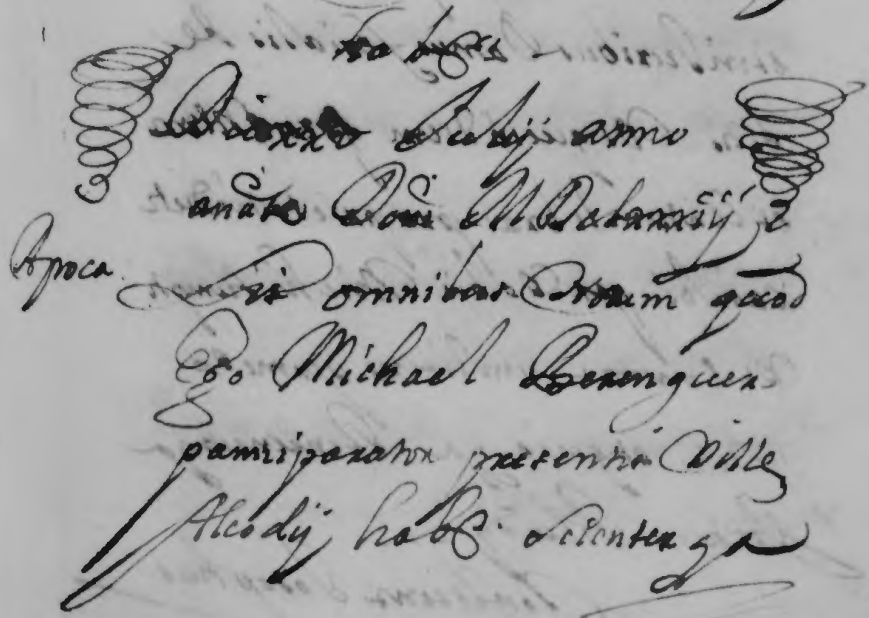 Die xxv Julij anno
a natte Domi MDclxxxiij
Apoca
Sit omnibus notum quod
Ego Michael Berenguer
panniparator presentis Ville
Alcodij habt. scienter ga